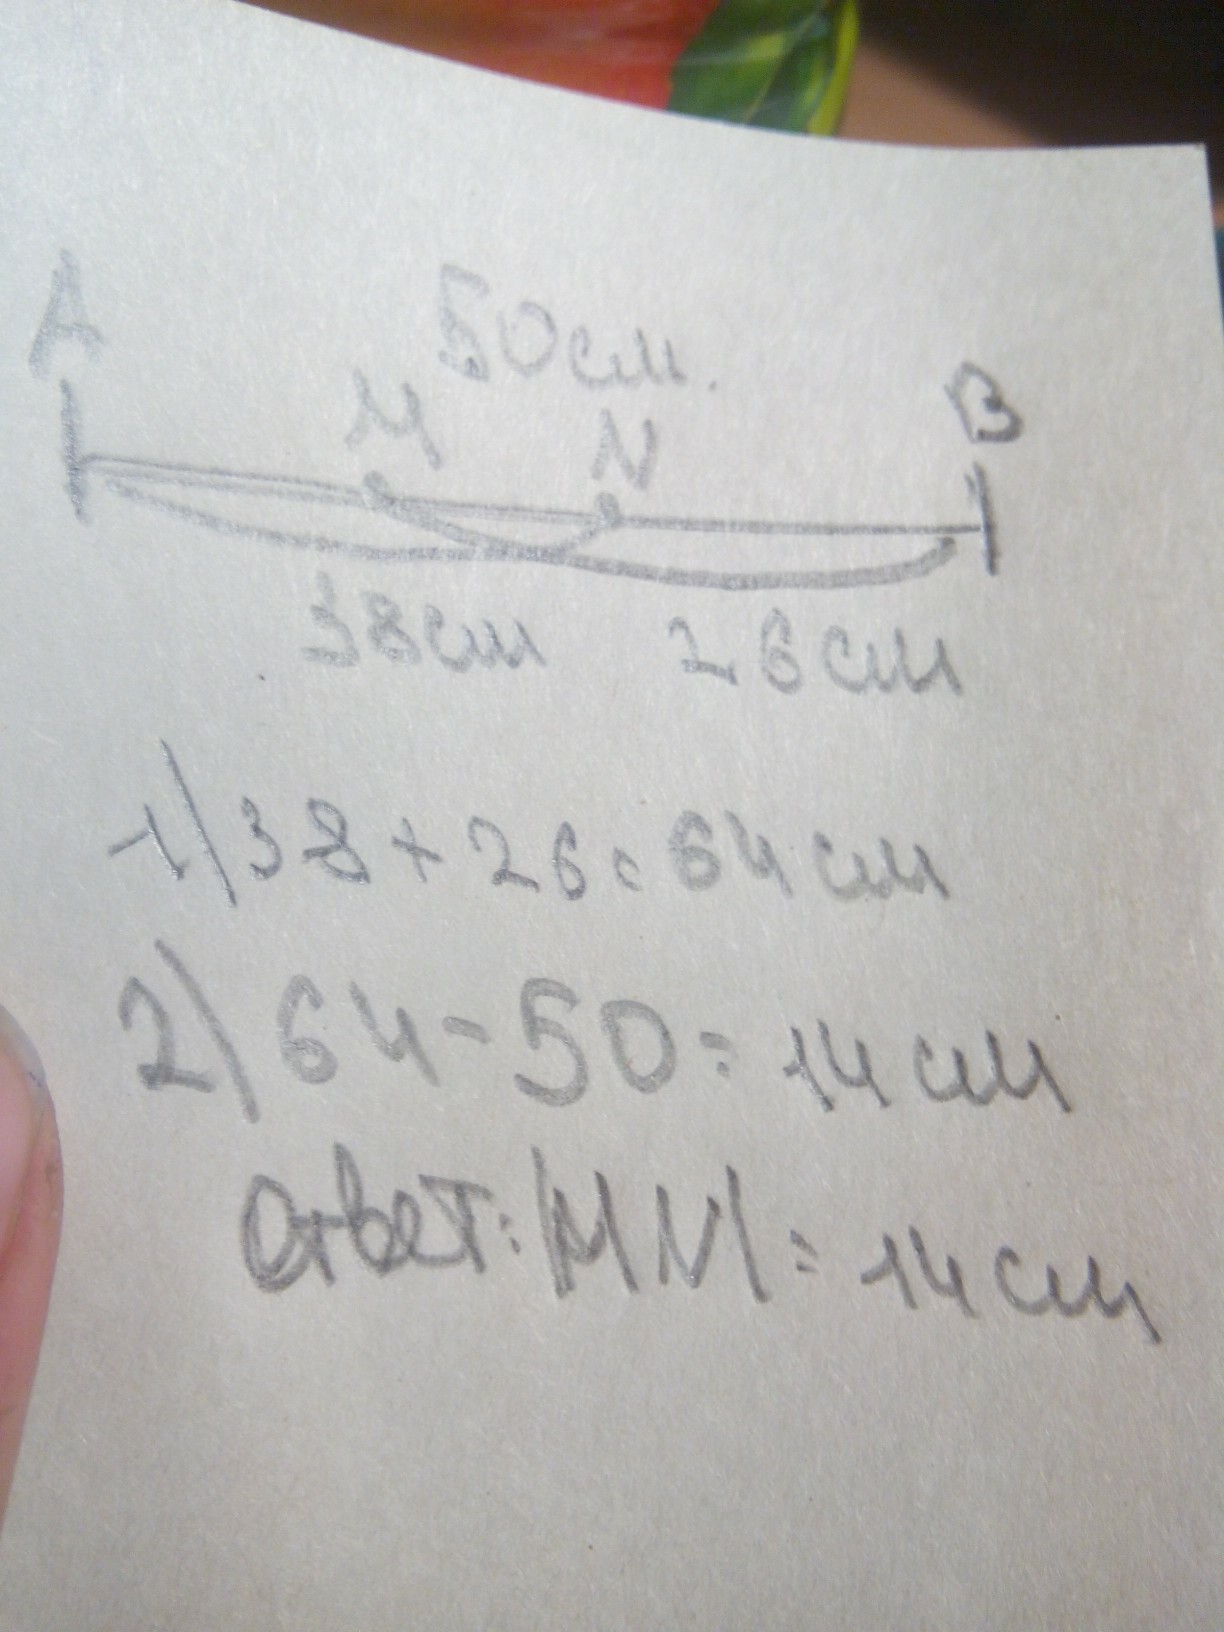 50см.
A M N B
38см 26см
1) 38 + 26 = 64 см
2) 64 - 50 = 14 см
ответ: |MN| = 14 см